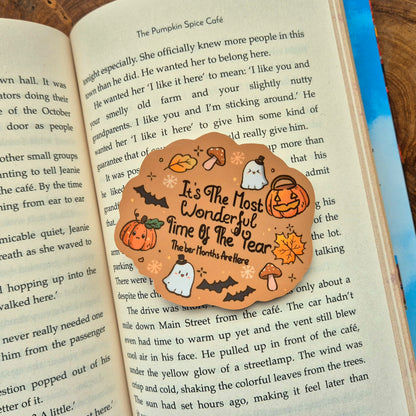 own hall. It was
ators doing their
of the October
door as people
other small groups
rted to Jeanie
the café. By the time
ning from ear to ear
micable quiet, Jeanie
reath as she waved to
hopping up into the
walked here.'
never really needed one
him from the passenger
estion popped out of his
'A little.'
The Pumpkin Spice Café
tonight especially. She officially knew more people in this
town than he did. He wanted her to belong here.
He wanted her 'I like it here' to mean: 'I like you and
your smelly old farm and your slightly nutty
grandparents. I like you and I'm sticking around.' He
wanted her 'I like it here' to give him some kind of
guarantee that
could really give him.
It's The Most
Wonderful
Time Of The Year
The ber Months Are Here
There were
despite the
only about a
The drive was short
mile down Main Street from the café. The car hadn't
even had time to warm up yet and the vent still blew
cool air in his face. He pulled up in front of the café,
under the yellow glow of a streetlamp. The wind was
crisp and cold, shaking the colorful leaves from the trees.
The sun had set hours ago, making it feel later than